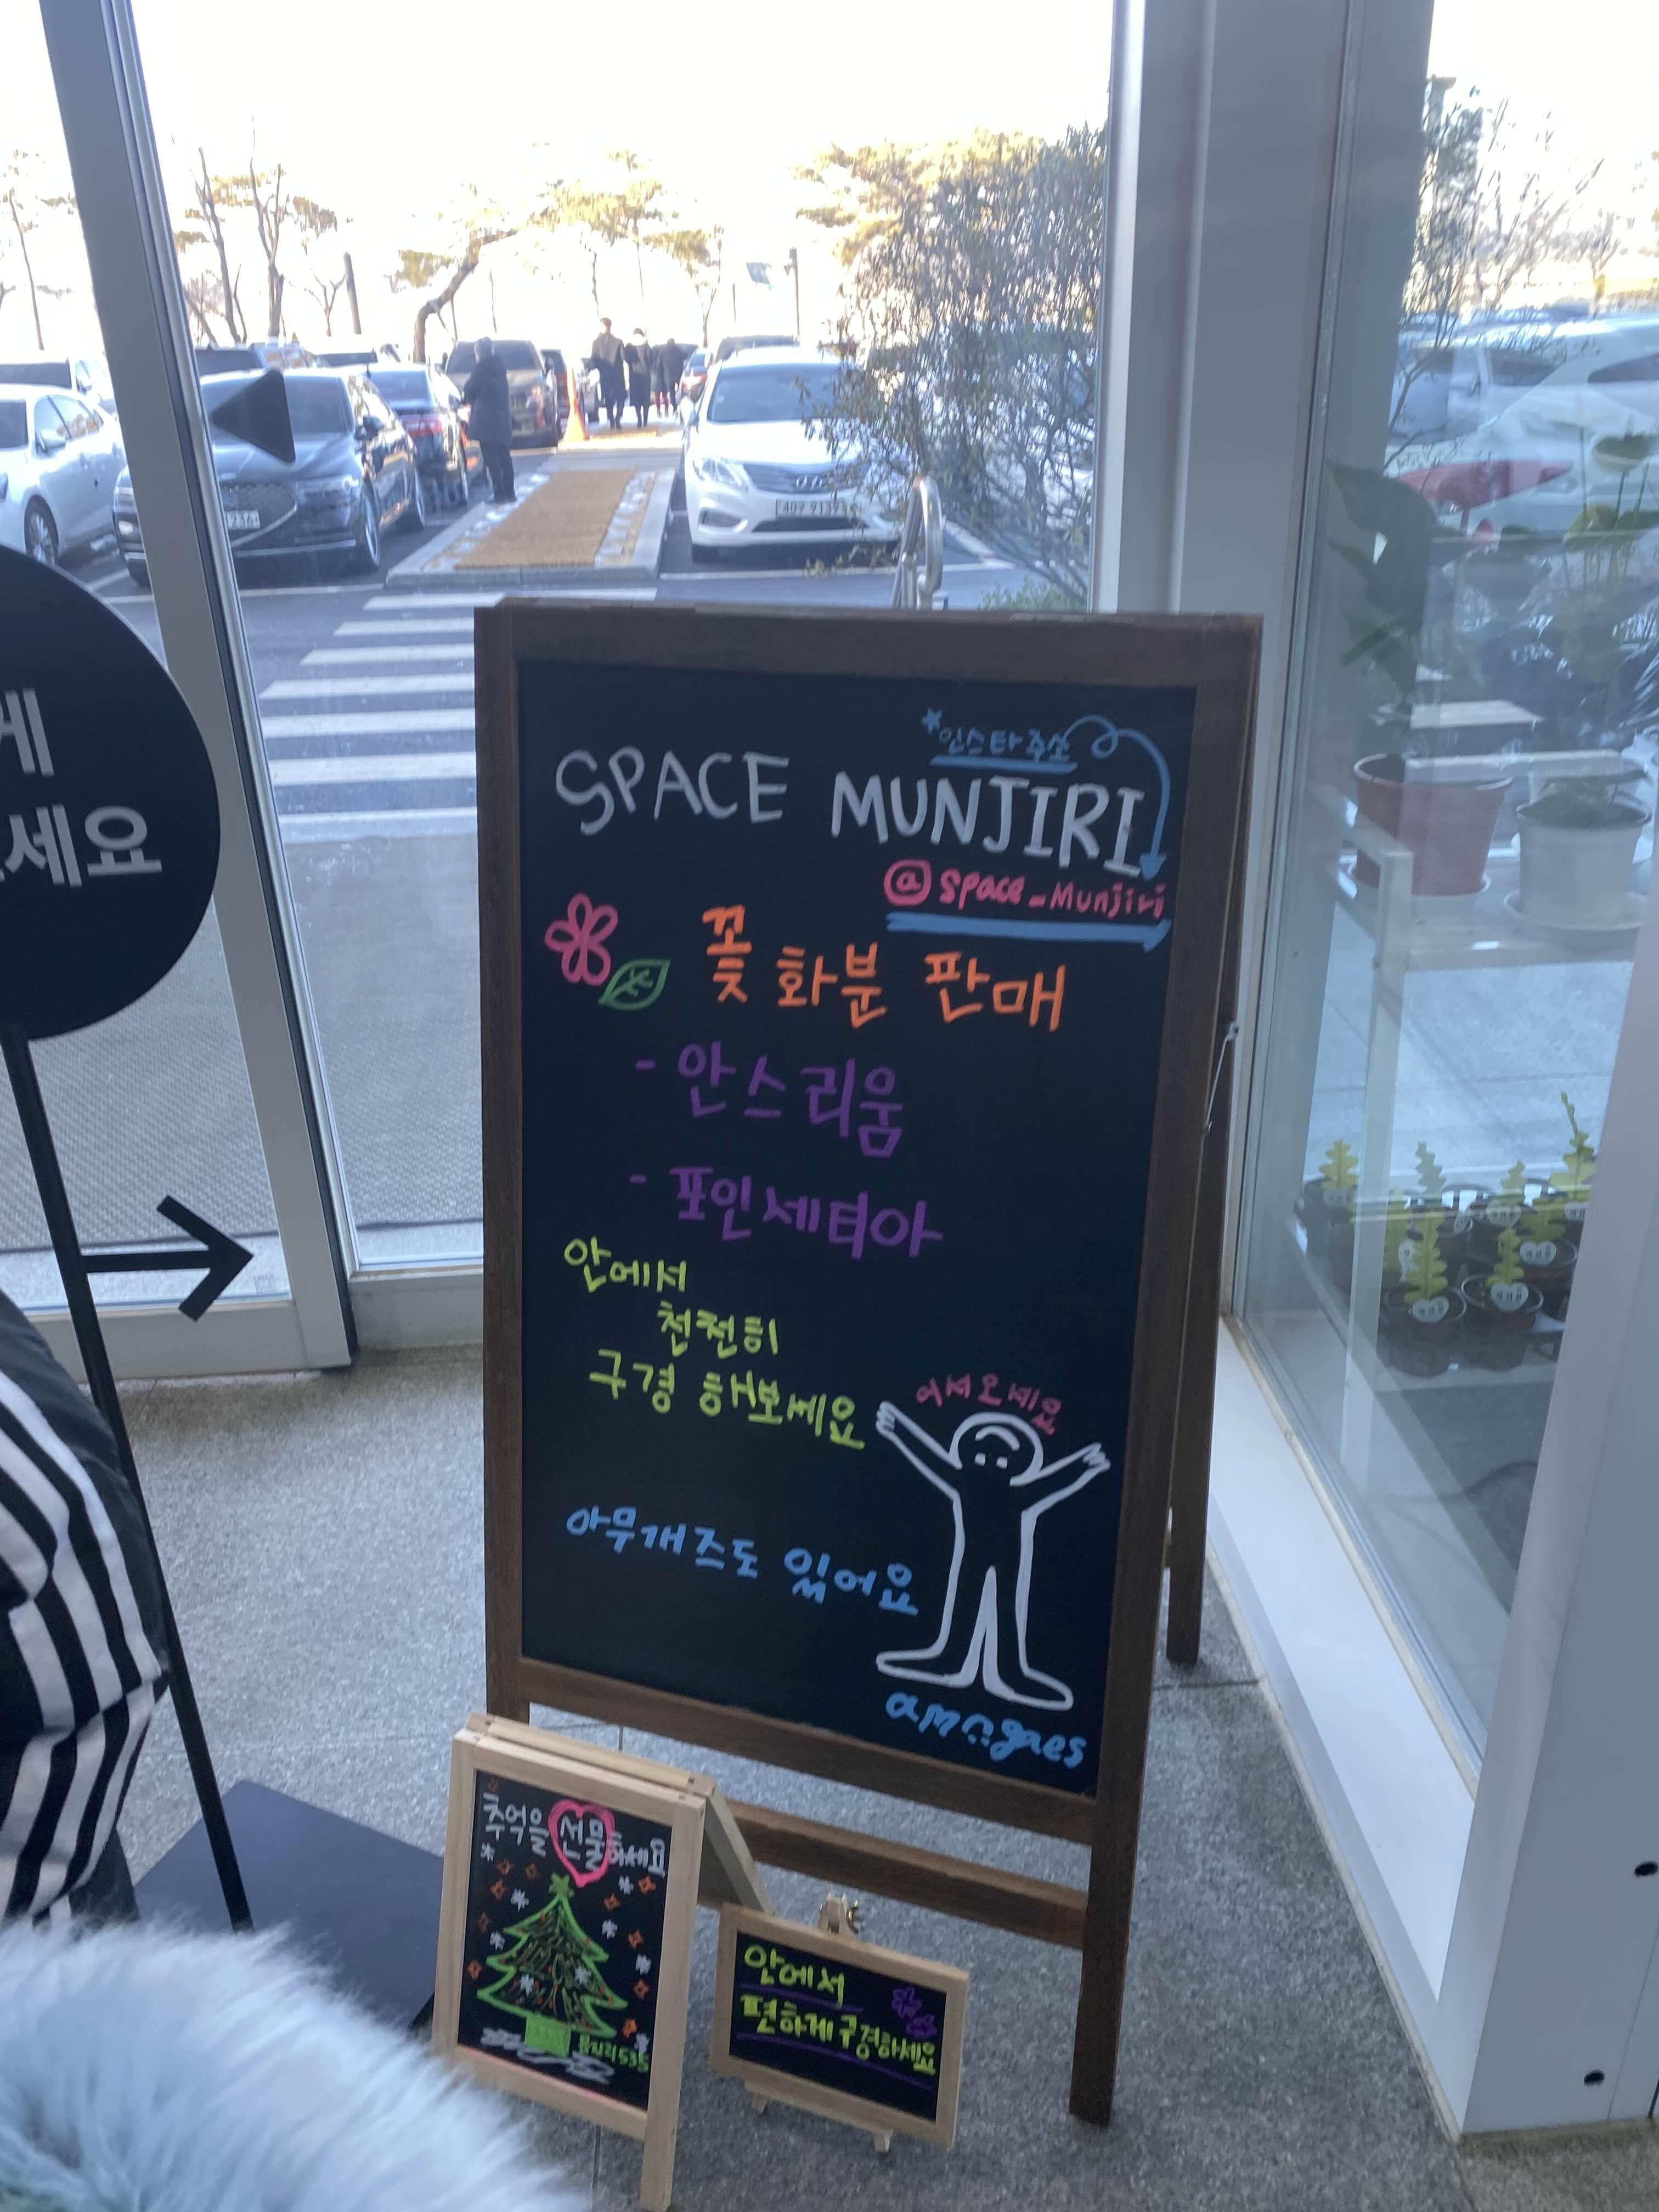 *인스타주소
SPACE MUNJIRI
@space_Munjiri
꽃 화분 판매
- 안스리움
- 포인세티아
안에서
천천히
구경 해보세요
어서오세요
아무개즈도 있어요
게
세요
추억을 선물하세요
안에서
편하게 구경하세요